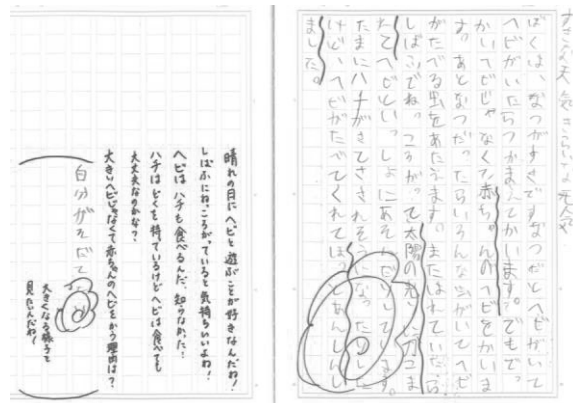 すきな天気きらいな天気
ぼくは、なつがすきですなつだとヘビがいて
ヘビがいたらつかまえてかいます。でもでっ
かいヘビじゃなくて赤ちゃんのヘビをかいま
す。あとなつだったらいろんな虫がいてヘビ
がたべる虫をあたえます。またはれていたら
しばふでねっころがって太陽の光に
たてヘビといっしょにあそんだりしてます。
たまにハチがきてさされそうになった
けどヘビがたべてくれてほっとあんしんし
ました。
晴れの日にヘビと遊ぶことが好きなんだね!
しばふにねころがっていると気持ちいいよね!
ヘビはハチも食べるんだ、知らなかった!
ハチはどくを持ているけどヘビは食べても
大丈夫なのかな?
大きいヘビじゃなくて赤ちゃんのヘビをかう理由は?
自分がそだてて
大きくなる様子を
見たいんだね!